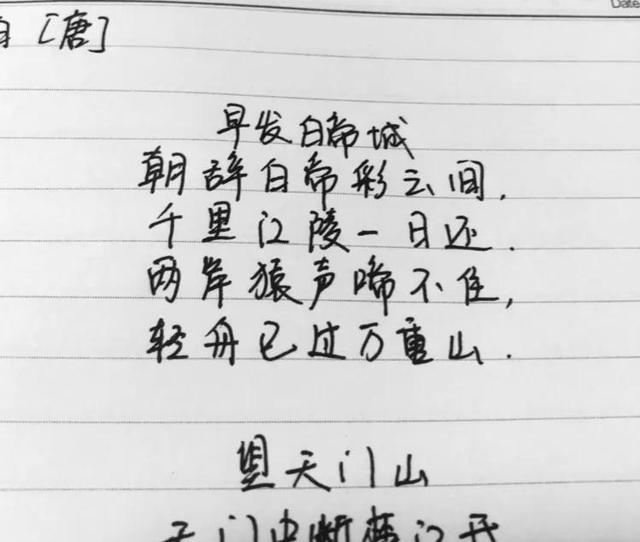 Date
[唐]
早发白帝城
朝辞白帝彩云间，
千里江陵一日还．
两岸猿声啼不住，
轻舟已过万重山．
望天门山
天门中断楚江开